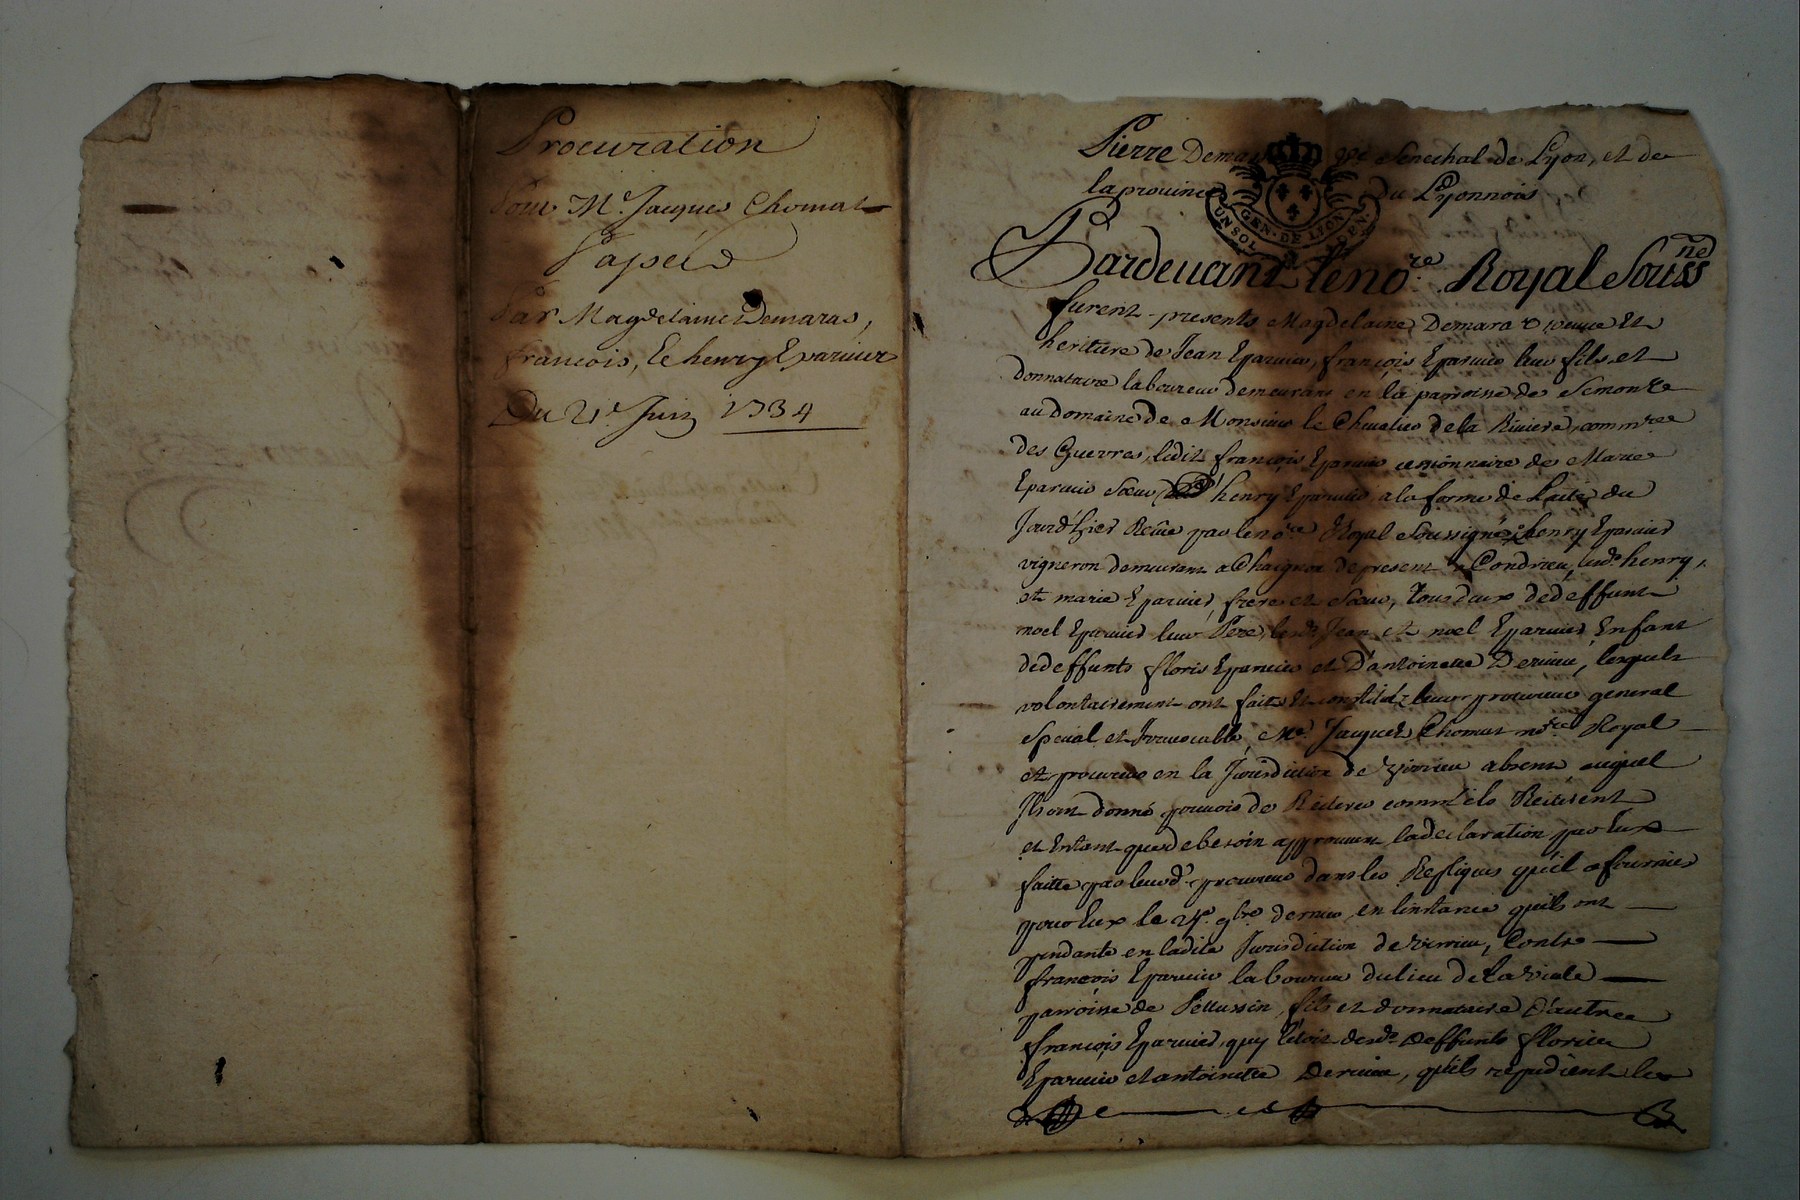 Procuration
Pour Me. Jacques Chomat
Par Magdelaine Demaras,
francois, & henry Eparvier
Du 21e. Juin 1734
Pierre senechal de Lyon, et de
la province du Lyonnois
GEN. DE LYON
UN SOL
Pardevant le no.re Royal Souss.né
furent presents Magdelaine Demara veuve Et
heritiere de Jean Eparvier, françois Eparvier leur fils, et
donnataire laboureur demeurant en la parroisse de
au domaine de Monsieur le Chevalier de la Riviere, comm.re
des Guerres, ledit françois Eparvier cessionnaire de Marie
Eparvier soeur henry Eparvier, a la forme de Lacte du
Jourd'hier Receu par le no.re Royal soussigné, & henry Eparvier
vigneron demeurant a de present a Condrieu, led. henry,
et marie Eparvier, frere et soeur, tous deux de deffunt
noel Eparvier leur Pere, lesd. Jean et noel Eparvier Enfant
de deffunts floris Eparvier et D'antoinette Dervieu, lesquels
volontairement ont fait Et constitué leur procureur general
special et Irrevocable, Me. Jacques Chomat no.re Royal
et procureur en la Jurisdiction de Virrieu absent, auquel
Ils ont donné pouvoir de Reiterer comm'ils Reiterent
et Entant que de besoin approuvent la declaration par Eux
faitte par leurd. procureur dans les Repliques qu'il a fournies
pour Eux le 24e. 9bre dernier, en linstance qu'ils ont
pendante en ladite Jurisdiction de Virrieu, Contre
françois Eparvier laboureur du lieu de la Viale
parroisse de Pellussin, fils et donnataire D'autre
françois Eparvier, quy l'etoit desd. deffunts floris
Eparvier et antoinette Dervieu, qu'ils repudient les